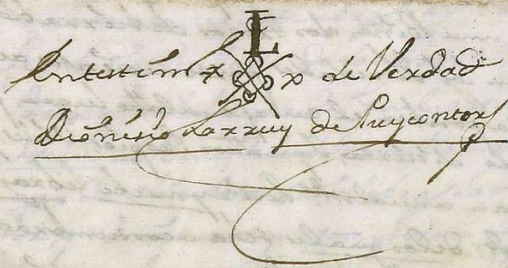 L
En testim.º de Verdad
Dionisio Larruy de Puycontor